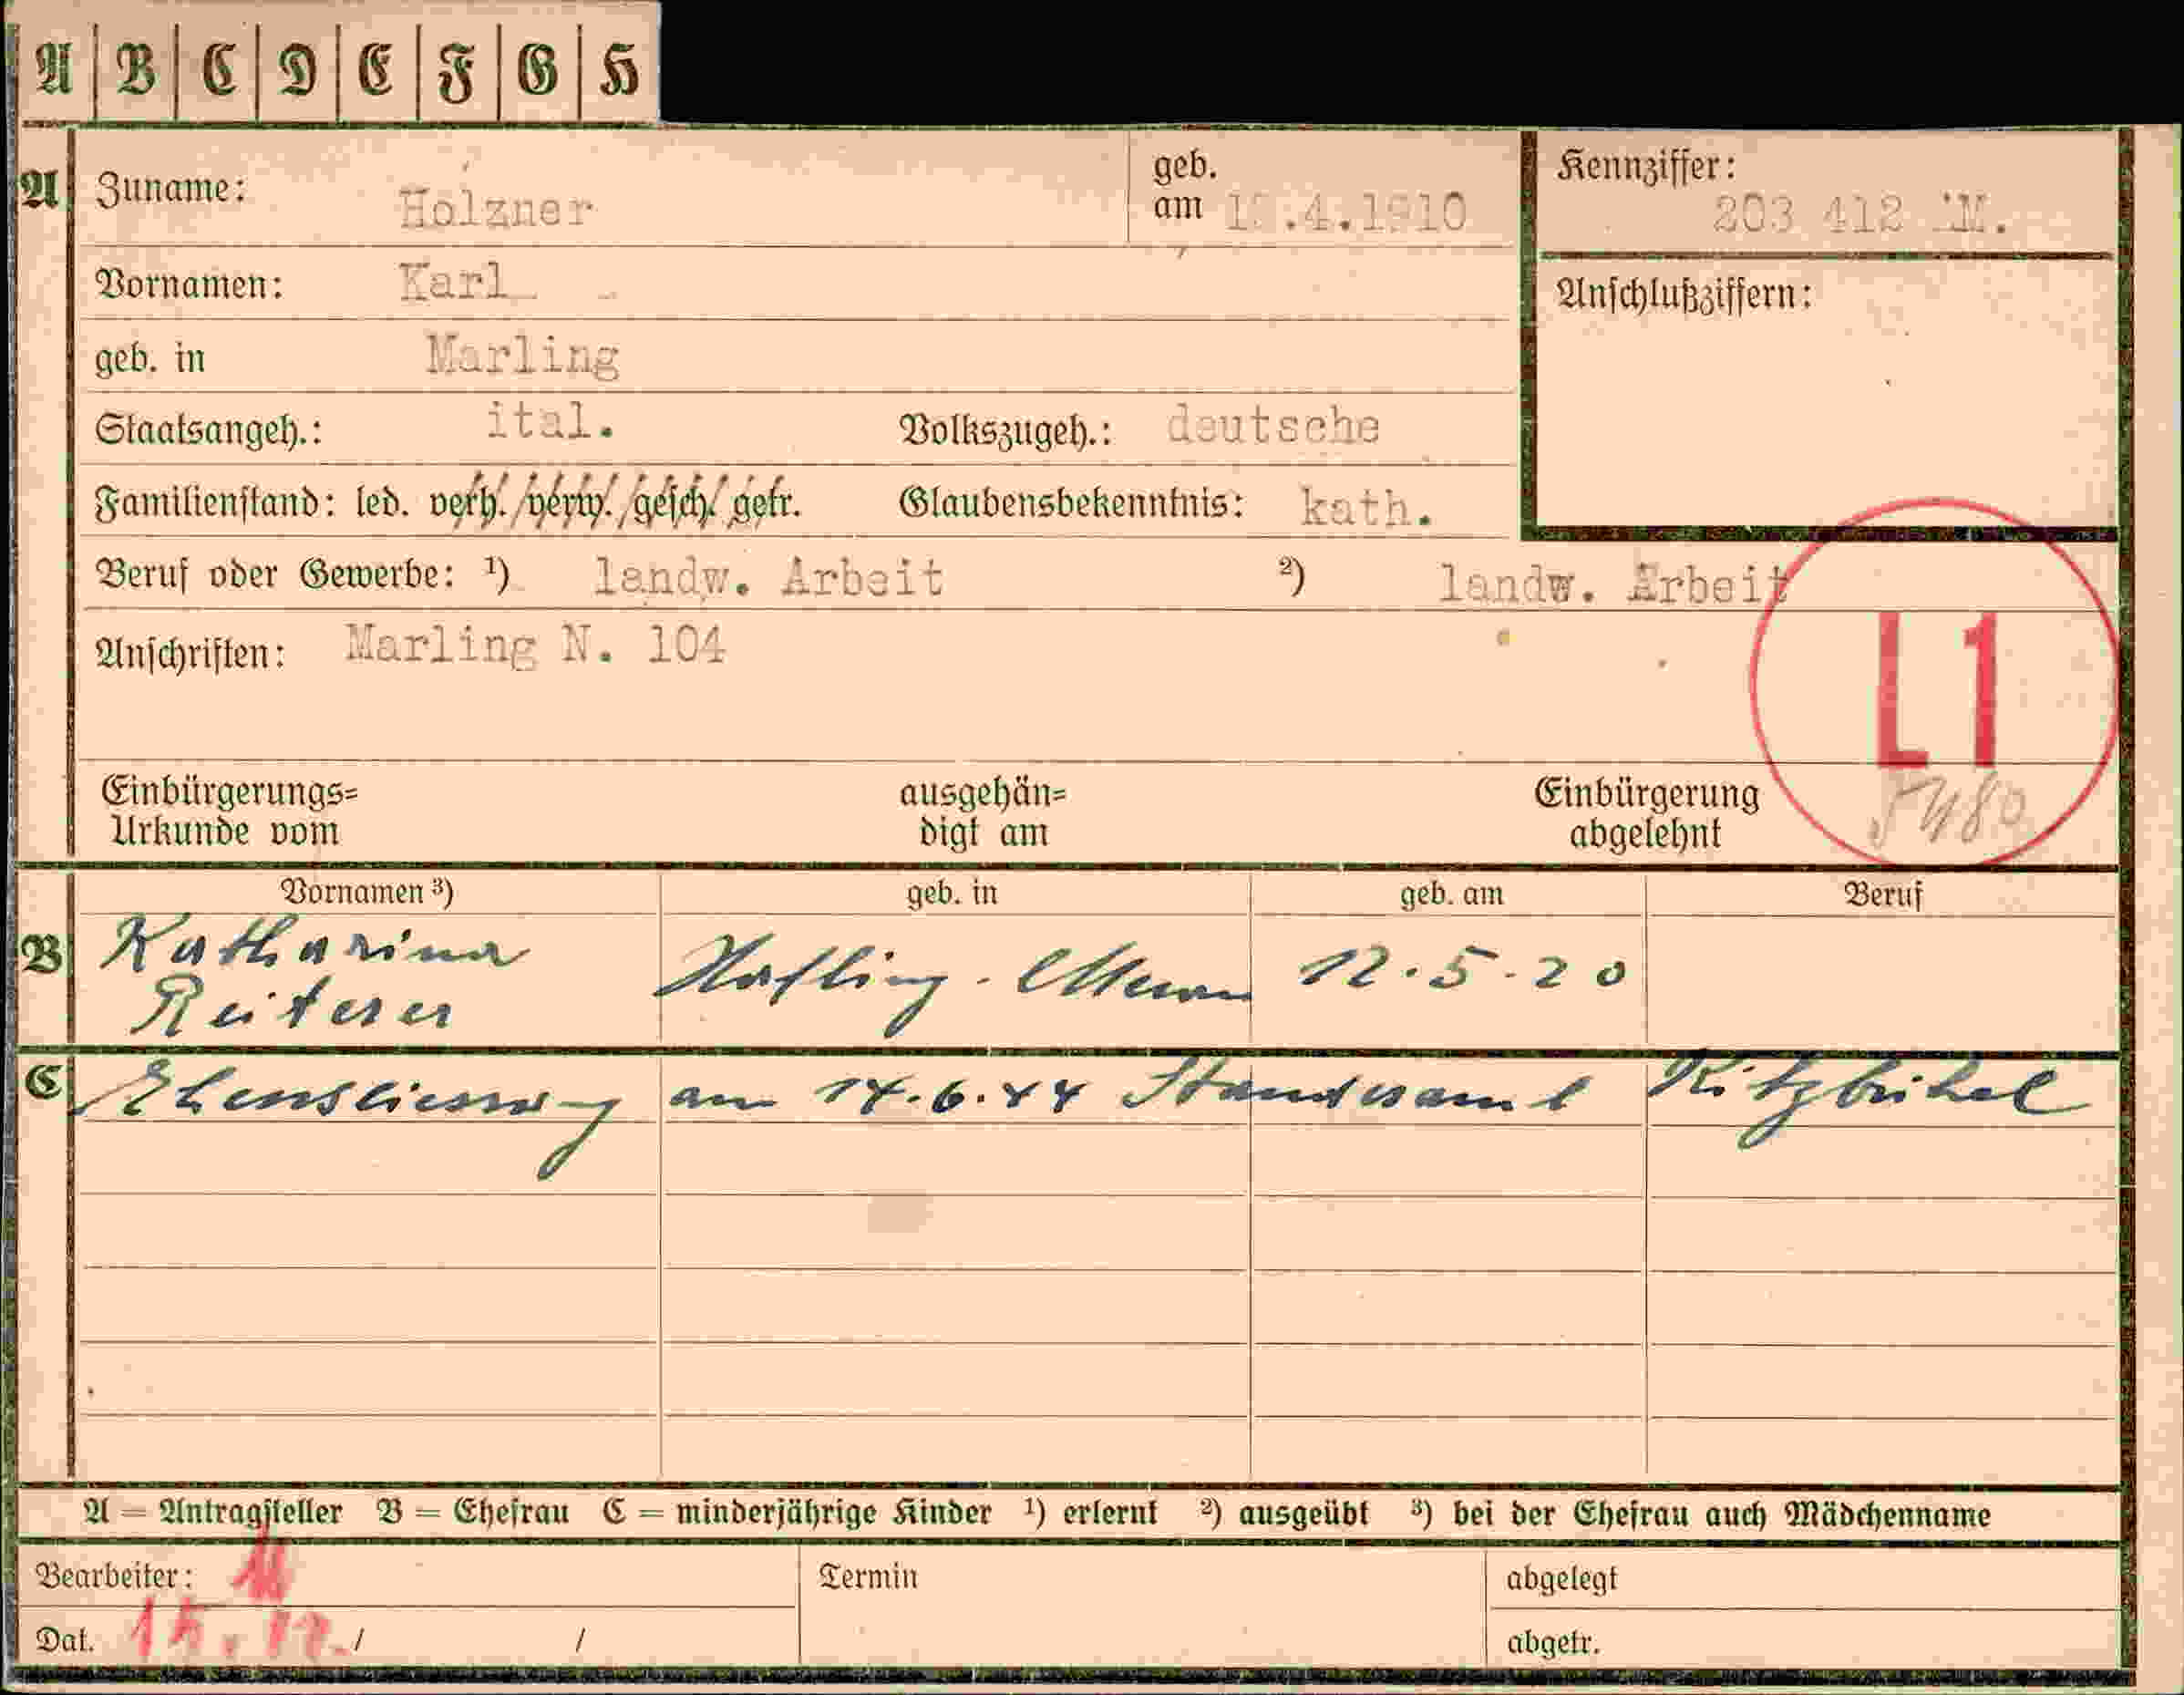 A B C D E F G H
A Zuname: Holzner geb. am .4.1910 Kennziffer: 203 412 M.
Vornamen: Karl Anschlußziffern:
geb. in Marling
Staatsangeh.: ital. Volkszugeh.: deutsche
Familienstand: led. verh./verw./gesch./getr. Glaubensbekenntnis: kath.
Beruf oder Gewerbe: ¹) landw. Arbeit ²) landw. Arbeit
Anschriften: Marling N. 104
L1
5480
Einbürgerungs=
Urkunde vom
ausgehän=
digt am
Einbürgerung
abgelehnt
Vornamen ³) geb. in geb. am Beruf
B Katharina
Reiterer
Hafling - Meran 12.5.20
C Ehensliessung am 14.6.44 Standesamt Kitzbühel
A = Antragsteller B = Ehefrau C = minderjährige Kinder ¹) erlernt ²) ausgeübt ³) bei der Ehefrau auch Mädchenname
Bearbeiter: Termin abgelegt
Dat. 15.12. / / abgetr.